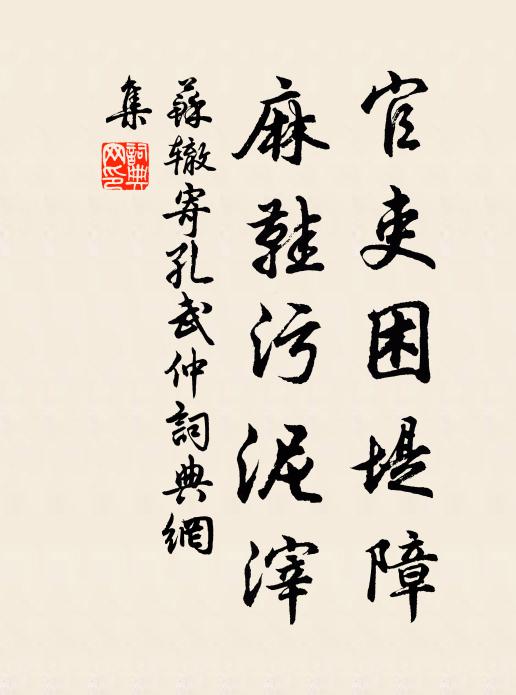 官吏困堤障
麻鞋污泥滓
蘇辙寄孔武仲詞典網
集
詞典
网印